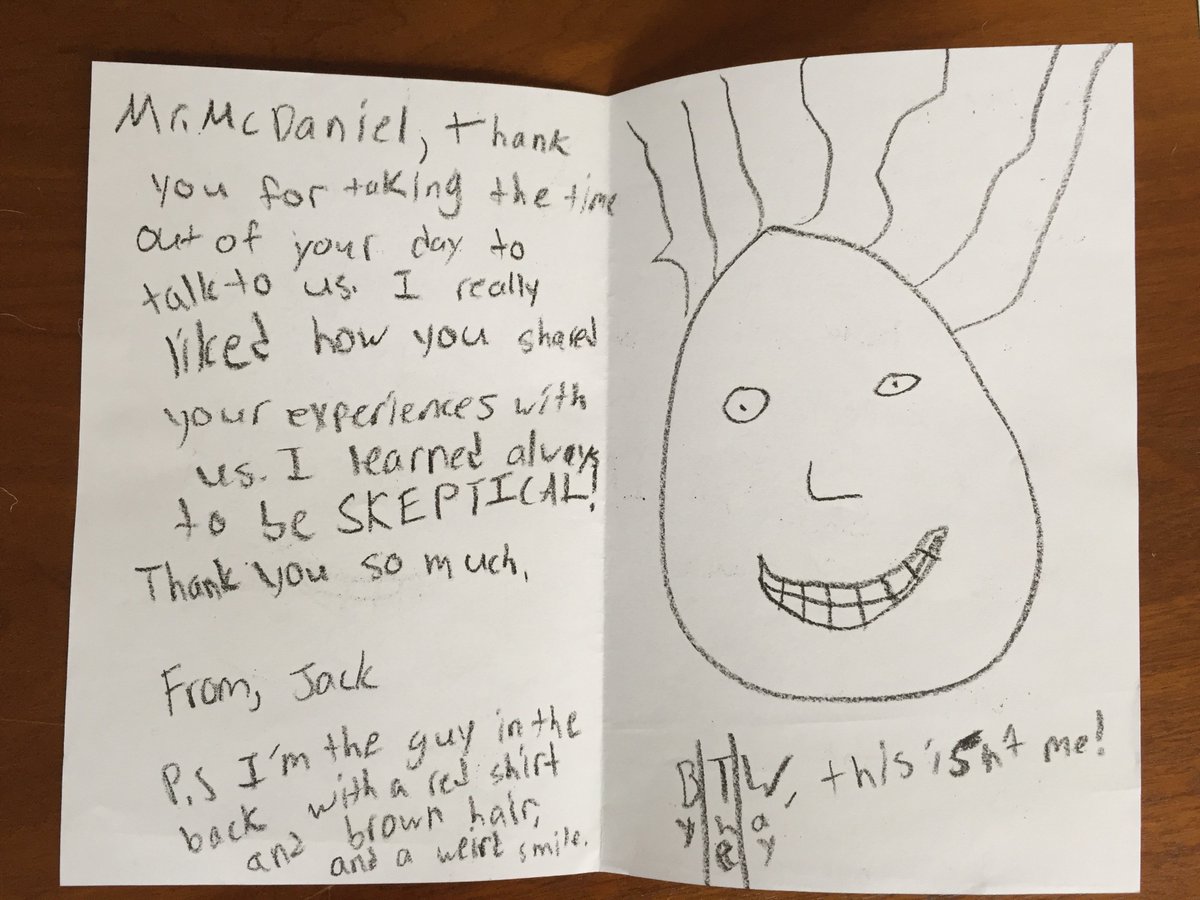 Mr. McDaniel, thank
you for taking the time
out of your day to
talk to us. I really
liked how you shared
your experiences with
us. I learned always
to be SKEPTICAL!
Thank you so much,
From, Jack
P.S I'm the guy in the
back with a red shirt
and brown hair,
and a weird smile.
BTW, this isn't me!
By The Way